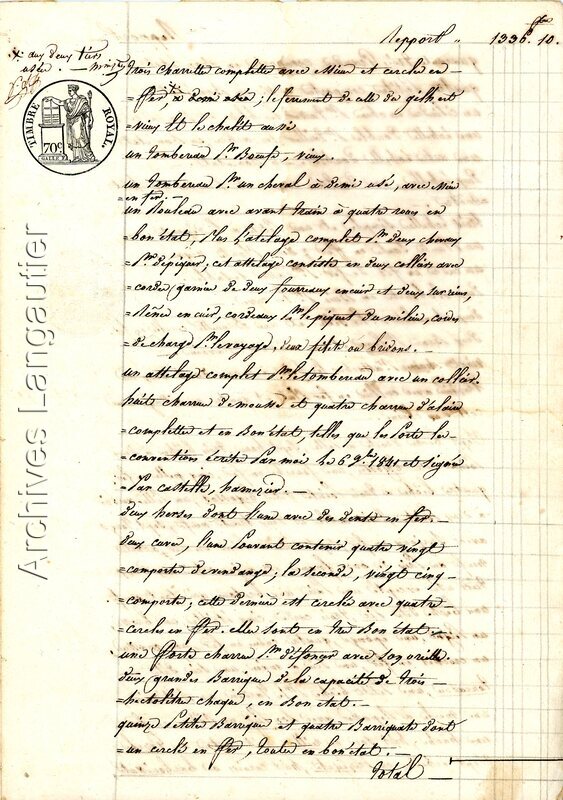 Report
ffcs
1336. 10.
x aux deux tiers
usée.
TIMBRE ROYAL.
70c
trois charrettes complettes avec Mén et cercle en
=ffer, x à demi usée; le ferrement de celle de gilh est
vieux Et le chalit aussi
un tombereau Pr. Boeufs, vieux.
un tombereau Pr. un cheval à demi usé, avec
= en fer.
un Rouleau avec avant train à quatre roues en
=bon état, Plus L'atelage complet Pr. deux chevaux
=Pr. dépiquer; cet attelage consiste en deux colliers avec
=corde, garnie de deux fourreaux en cuir et deux
=Rêne en cuir, cordeaux Pr. le piquet du milieu, cordes
=de charge Pr. le voyage, deux filets ou bridons.
un attelage complet Pr. le tombereau avec un collier.
huit charrue de mousse et quatre charrue d'alaire
=complettes et en Bon état, telles que les Porte les
=conventions écrite Par moi le 6 9bre. 1841 et signée
=Par castelle, hamezier.
deux herses dont l'une avec des dents en fer.
deux cuve, l'une Pouvant contenir quatre vingt
=comporte de vendange; la seconde, vingt cinq
=comporte; cette dernière est cerclée avec quatre
=cercles en ffer. elles sont en très Bon état.
une fforte charrue Pr. défoncer avec son oreille.
deux grandes Barrique de la capacité de trois
=hectolitre chaque, en Bon état.
quinze Petite Barrique et quatre Barriquats dont
=un cerclé en ffer, toutes en bon état.
total
Archives Langautier